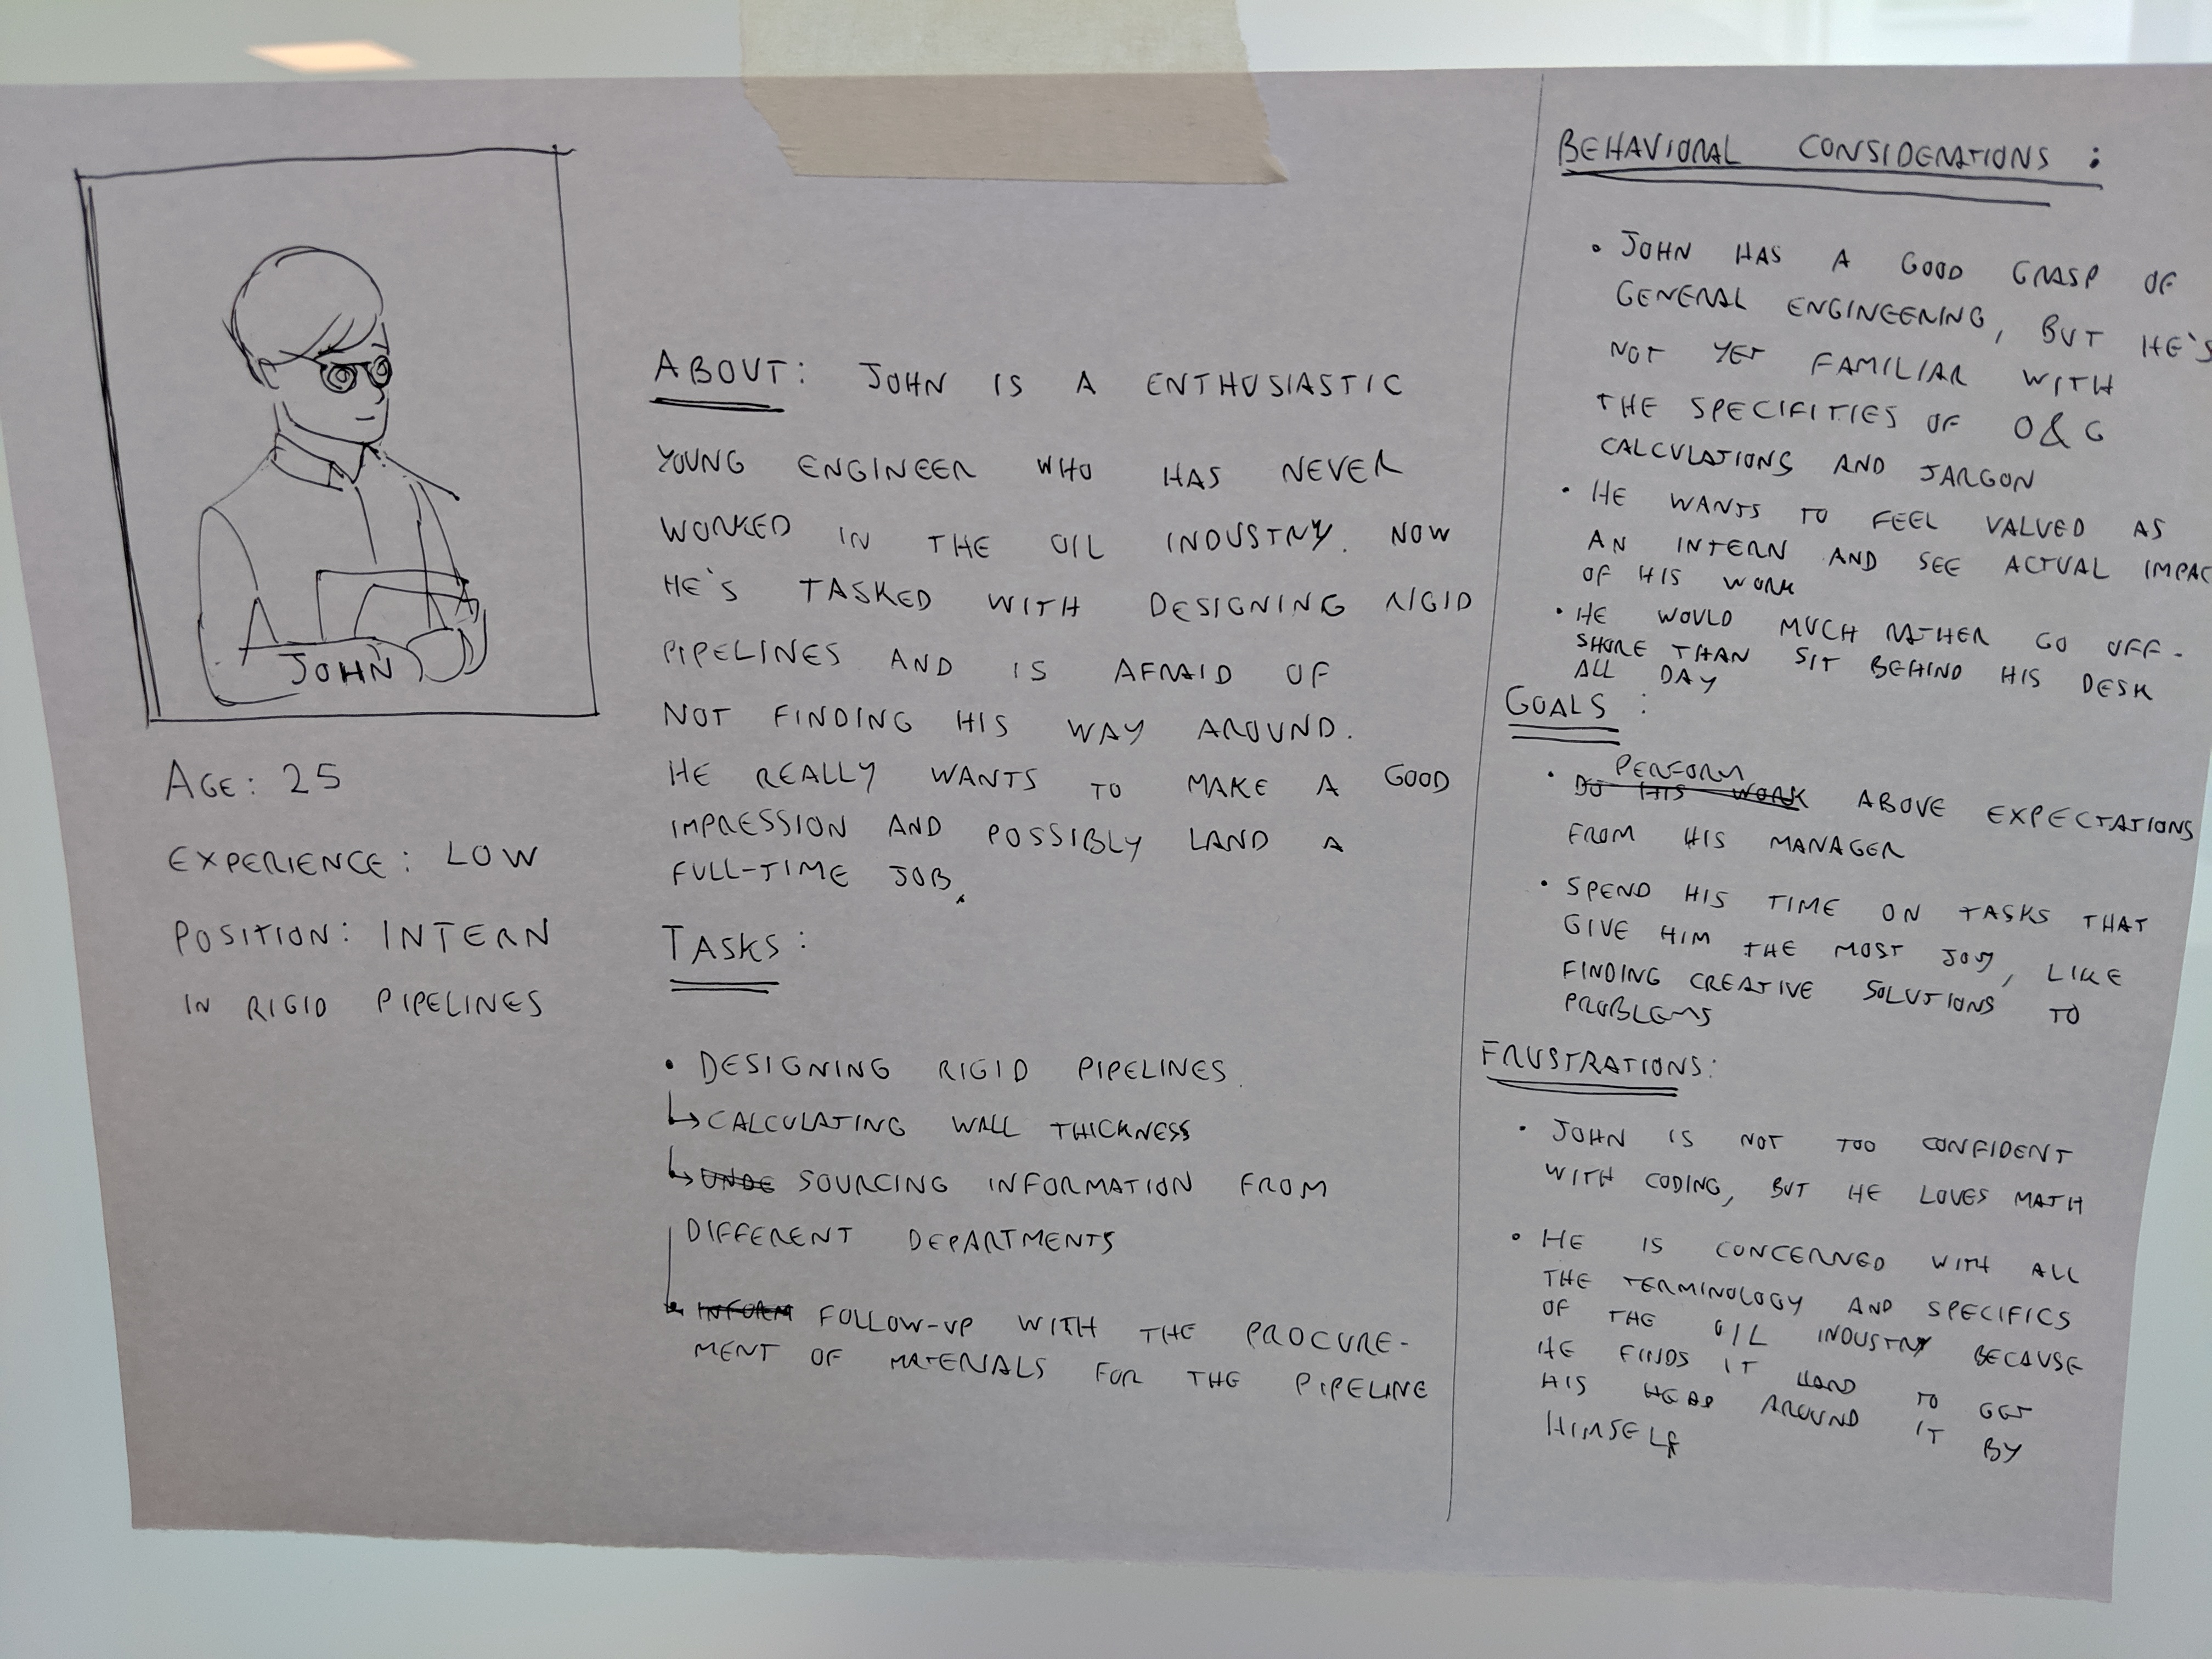 JOHN
AGE: 25
EXPERIENCE: LOW
POSITION: INTERN
IN RIGID PIPELINES
ABOUT: JOHN IS A ENTHUSIASTIC
YOUNG ENGINEER WHO HAS NEVER
WORKED IN THE OIL INDUSTRY. NOW
HE'S TASKED WITH DESIGNING RIGID
PIPELINES AND IS AFRAID OF
NOT FINDING HIS WAY AROUND.
HE REALLY WANTS TO MAKE A GOOD
IMPRESSION AND POSSIBLY LAND A
FULL-TIME JOB.
TASKS:
• DESIGNING RIGID PIPELINES.
↳ CALCULATING WALL THICKNESS
↳ UNDE SOURCING INFORMATION FROM
DIFFERENT DEPARTMENTS
• INFORM FOLLOW-UP WITH THE PROCURE-
MENT OF MATERIALS FOR THE PIPELINE
BEHAVIORAL CONSIDERATIONS:
• JOHN HAS A GOOD GRASP OF
GENERAL ENGINEERING, BUT HE'S
NOT YET FAMILIAR WITH
THE SPECIFITIES OF O&G
CALCULATIONS AND JARGON
• HE WANTS TO FEEL VALUED AS
AN INTERN AND SEE ACTUAL IMPAC
OF HIS WORK
• HE WOULD MUCH RATHER GO OFF-
SHORE THAN SIT BEHIND HIS DESK
ALL DAY
GOALS:
PERFORM
• DO HIS WORK ABOVE EXPECTATIONS
FROM HIS MANAGER
• SPEND HIS TIME ON TASKS THAT
GIVE HIM THE MOST JOY, LIKE
FINDING CREATIVE SOLUTIONS TO
PROBLEMS
FRUSTRATIONS:
• JOHN IS NOT TOO CONFIDENT
WITH CODING, BUT HE LOVES MATH
• HE IS CONCERNED WITH ALL
THE TERMINOLOGY AND SPECIFICS
OF THE OIL INDUSTRY BECAUSE
HE FINDS IT HARD TO GET
HIS HEAD AROUND IT BY
HIMSELF